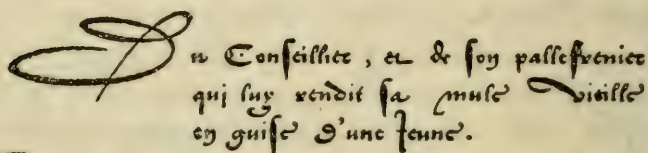 Du Conseillier, et de son pallefrenier
qui luy rendit sa mule vieille
en guise d'une Jeune.